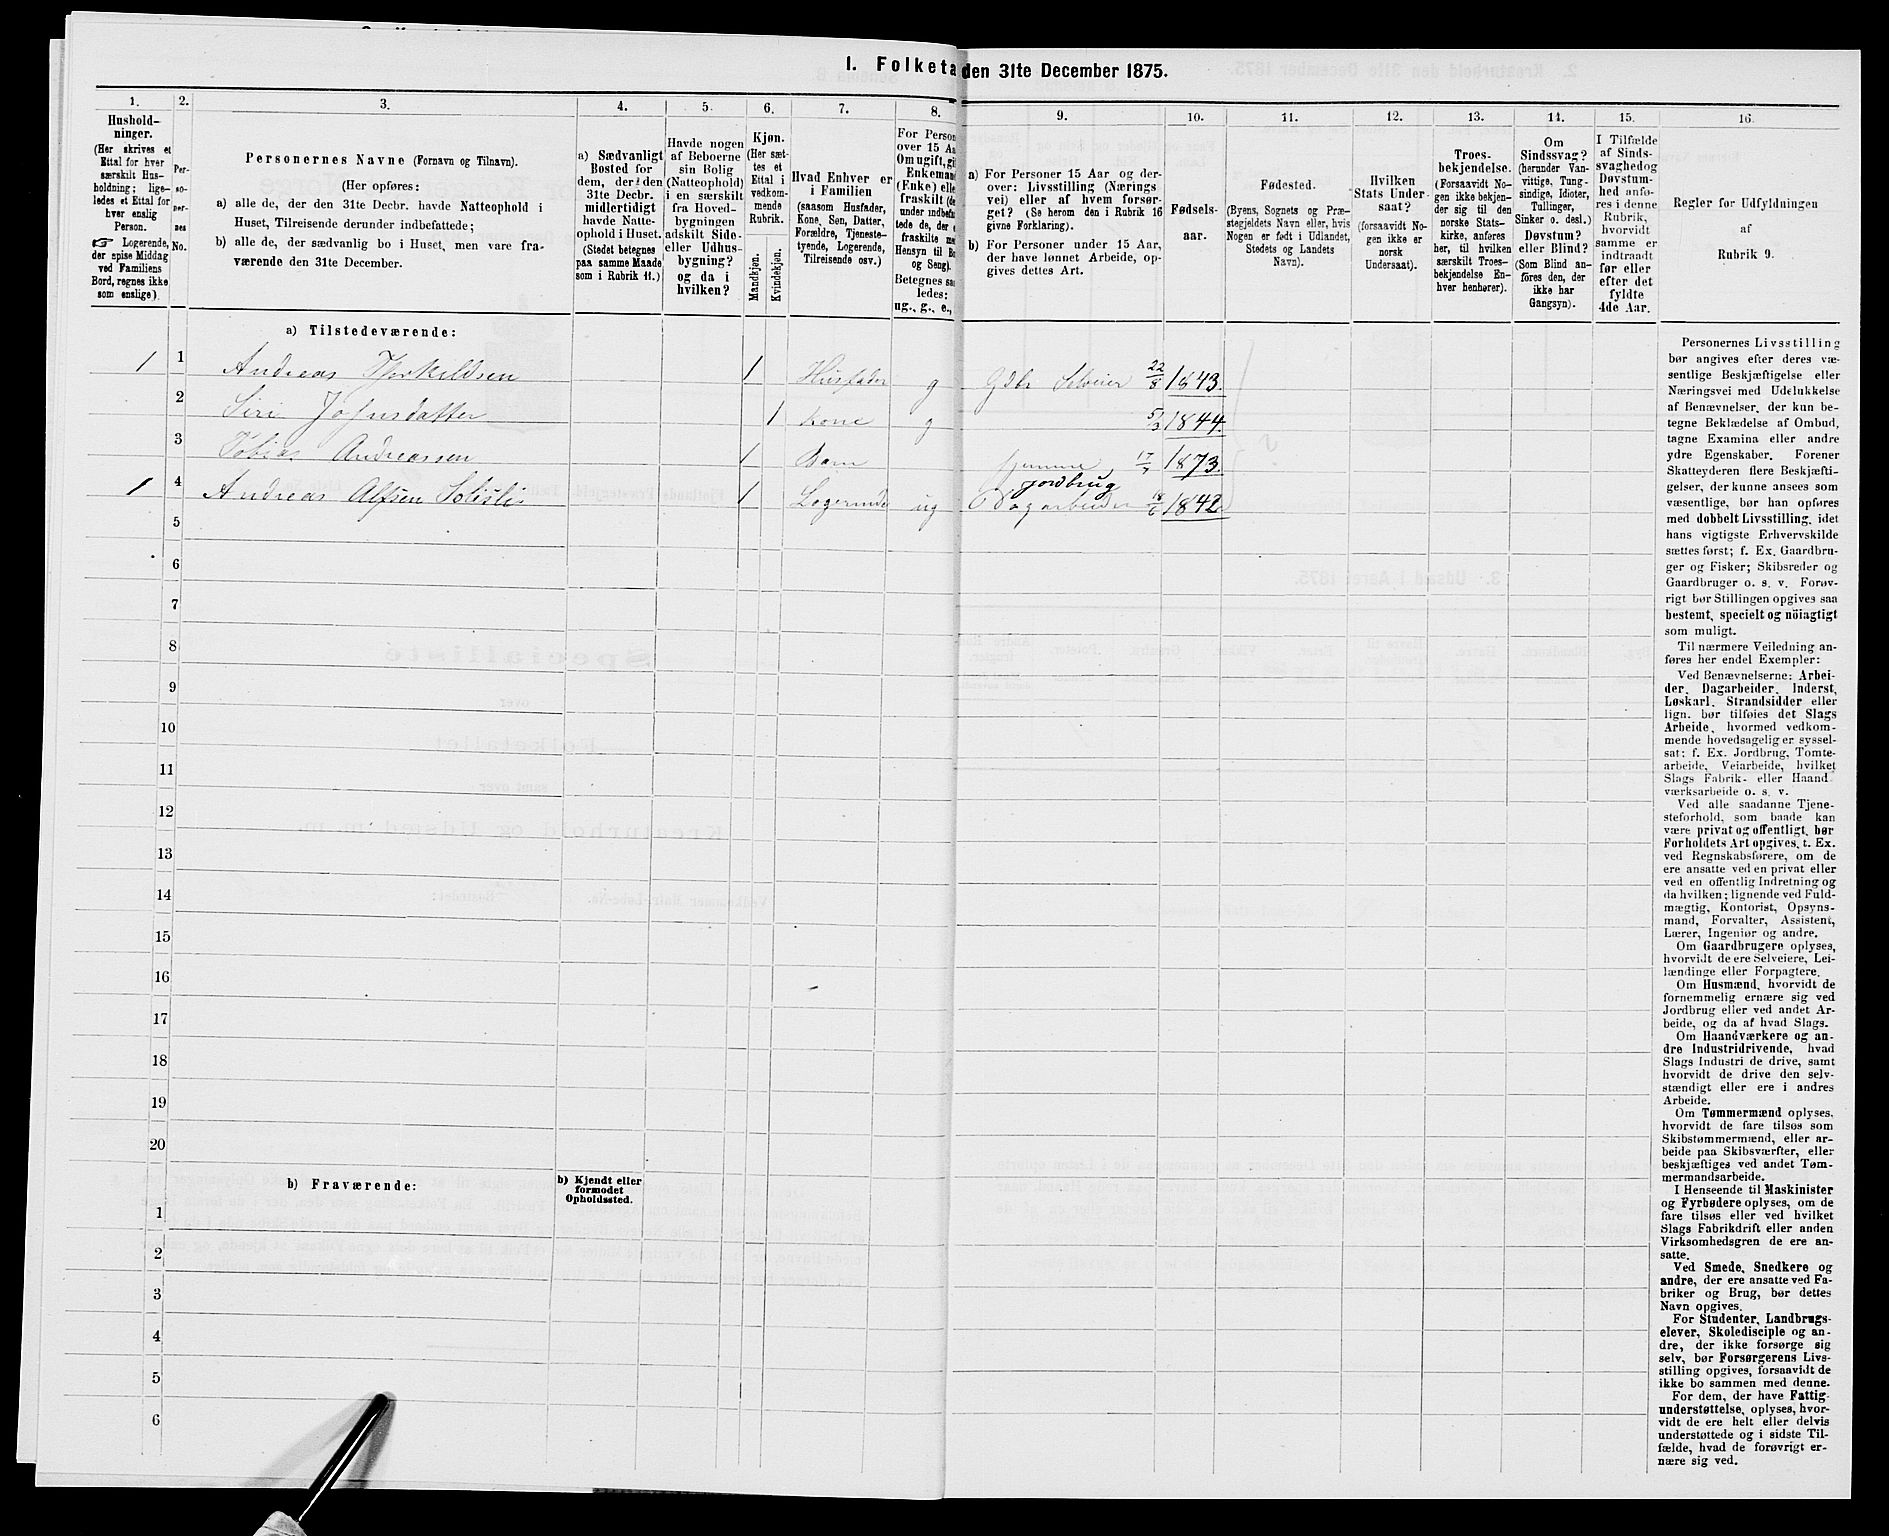 I. Folketa den 31te December 1875.
1.
2.
3.
4.
5.
6.
7.
8.
9.
10.
11.
12.
13.
14.
15.
16.
Hushold-
ninger.
(Her skrives et
Ettal for hver
særskilt Hus-
holdning; lige-
ledes et Ettal for
hver enslig
Person.
☞ Logerende,
der spise Middag
ved Familiens
Bord, regnes ikke
som enslige).
Per-
so-
ner-
nes
No.
Personernes Navne (Fornavn og Tilnavn).
(Her opføres:
a) alle de, der den 31te Decbr. havde Natteophold i
Huset, Tilreisende derunder indbefattede;
b) alle de, der sædvanlig bo i Huset, men vare fra-
værende den 31te December.
a) Sædvanligt
Bosted for
dem, der den
31te Decbr.
midlertidigt
havde Natte-
ophold i Huset.
(Stedet betegnes
paa samme Maade
som i Rubrik 11.)
Havde nogen
af Beboerne
sin Bolig
(Natteophold)
i en særskilt
fra Hoved-
bygningen
adskilt Side-
eller Udhus-
bygning?
og da i
hvilken?
Kjøn.
(Her sæt-
tes et
Ettal i
vedkom-
mende
Rubrik.
Mandkjøn.
Kvindekjøn.
Hvad Enhver er
i Familien
(saasom Husfader,
Kone, Søn, Datter,
Forældre, Tjeneste-
tyende, Logerende,
Tilreisende osv.)
For Person
over 15 Aa
Om ugift, gi
Enkemand
(Enke) elle
fraskilt (de
under indbefa
tede de, der e
fraskilte me
Hensyn til Bo
og Seng).
Betegnes saa
ledes:
ug., g., e.,
a) For Personer 15 Aar og der-
over: Livsstilling (Nærings
vei) eller af hvem forsør-
get? (Se herom den i Rubrik 16
givne Forklaring).
b) For Personer under 15 Aar,
der have lønnet Arbeide, op-
gives dettes Art.
Fødsels-
aar.
Fødested.
(Byens, Sognets og Præ-
stegjeldets Navn eller, hvis
Nogen er født i Udlandet,
Stedets og Landets
Navn).
Hvilken
Stats Under-
saat?
(forsaavidt No-
gen ikke er
norsk
Undersaat).
Troes-
bekjendelse.
(Forsaavidt No-
gen ikke bekjen-
der sig til den
norske Stats-
kirke, anføres
her, til hvilken
særskilt Troes-
bekjendelse En-
hver henhører).
Om
Sindssvag?
(herunder Van-
vittige, Tung-
sindige, Idioter,
Tullinger,
Sinker o. desl.)
Døvstum?
eller Blind?
(Som Blind an-
føres den, der
ikke har
Gangsyn).
I Tilfælde
af Sinds-
svaghedog
Døvstum-
hed anfø-
res i denne
Rubrik,
hvorvidt
samme er
indtraadt
før eller
efter det
fyldte
4de Aar.
Regler for Udfyldningen
af
Rubrik 9.
a) Tilstedeværende:
1 1 Andreas Therkildsen 1 Husfader g Gdbr Selveier 22/8 1843.
2 Siri Johnsdatter 1 Kone g 5/3 1844.
3 Tobias Andreassen 1 Barn hjemme 17/7 1873.
jordbrug
1 4 Andreas Alfsen 1 Logerende ug Dagarbeider 18/6 1842
5
6
7
8
9
10
11
12
13
14
15
16
17
18
19
20
b) Fraværende:
b) Kjendt eller
formodet
Opholdssted.
1
2
3
4
5
6
Personernes Livsstilling
bør angives efter deres væ-
sentlige Beskjæftigelse eller
Næringsvei med Udelukkelse
af Benævnelser, der kun be-
tegne Beklædelse af Ombud,
tagne Examina eller andre
ydre Egenskaber. Forener
Skatteyderen flere Beskjæfti-
gelser, der kunne ansees som
væsentlige, bør han opføres
med dobbelt Livsstilling, idet
hans vigtigste Erhvervskilde
sættes først; f. Ex. Gaardbru-
ger og Fisker; Skibsreder og
Gaardbruger o. s. v. Forøv-
rigt bør Stillingen opgives saa
bestemt, specielt og nöiagtigt
som muligt.
Til nærmere Veiledning an-
føres her endel Exempler:
Ved Benævnelserne: Arbei-
der, Dagarbeider, Inderst,
Løskarl, Strandsidder eller
lign. bør tilføies det Slags
Arbeide, hvormed vedkom-
mende hovedsagelig er syssel-
sat; f. Ex. Jordbrug, Tomte-
arbeide, Veiarbeide, hvilket
Slags Fabrik- eller Haand-
værksarbeide o. s. v.
Ved alle saadanne Tjene-
steforhold, som baade kan
være privat og offentligt, bør
Forholdets Art opgives, f. Ex.
ved Regnskabsførere, om de
ere ansatte ved en privat eller
ved en offentlig Indretning og
da hvilken; lignende ved Fuld-
mægtig, Kontorist, Opsyns-
mand, Forvalter, Assistent,
Lærer, Ingeniør og andre.
Om Gaardbrugere oplyses,
hvorvidt de ere Selveiere, Lei-
lændinge eller Forpagtere.
Om Husmænd, hvorvidt de
fornemmelig ernære sig ved
Jordbrug eller ved andet Ar-
beide, og da af hvad Slags.
Om Haandværkere og an-
dre Industridrivende, hvad
Slags Industri de drive, samt
hvorvidt de drive den selv-
stændigt eller ere i andres
Arbeide.
Om Tømmermænd oplyses,
hvorvidt de fare tilsøs som
Skibstømmermænd, eller ar-
beide paa Skibsværfter, eller
beskjæftiges ved andet Tøm-
mermandsarbeide.
I Henseende til Maskinister
og Fyrbødere oplyses, om de
fare tilsøs eller ved hvilket
Slags Fabrikdrift eller anden
Virksomhedsgren de ere an-
satte.
Ved Smede, Snedkere og
andre, der ere ansatte ved Fa-
briker og Brug, bør dettes
Navn opgives.
For Studenter, Landbrugs-
elever, Skoledisciple og an-
dre, der ikke forsørge sig
selv, bør Forsørgerens Livs-
stilling opgives, forsaavidt de
ikke bo sammen med denne.
For dem, der have Fattig-
understøttelse, oplyses, hvor-
vidt de ere helt eller delvis
understøttede og i sidste Til-
fælde, hvad de forøvrigt er-
nære sig ved.